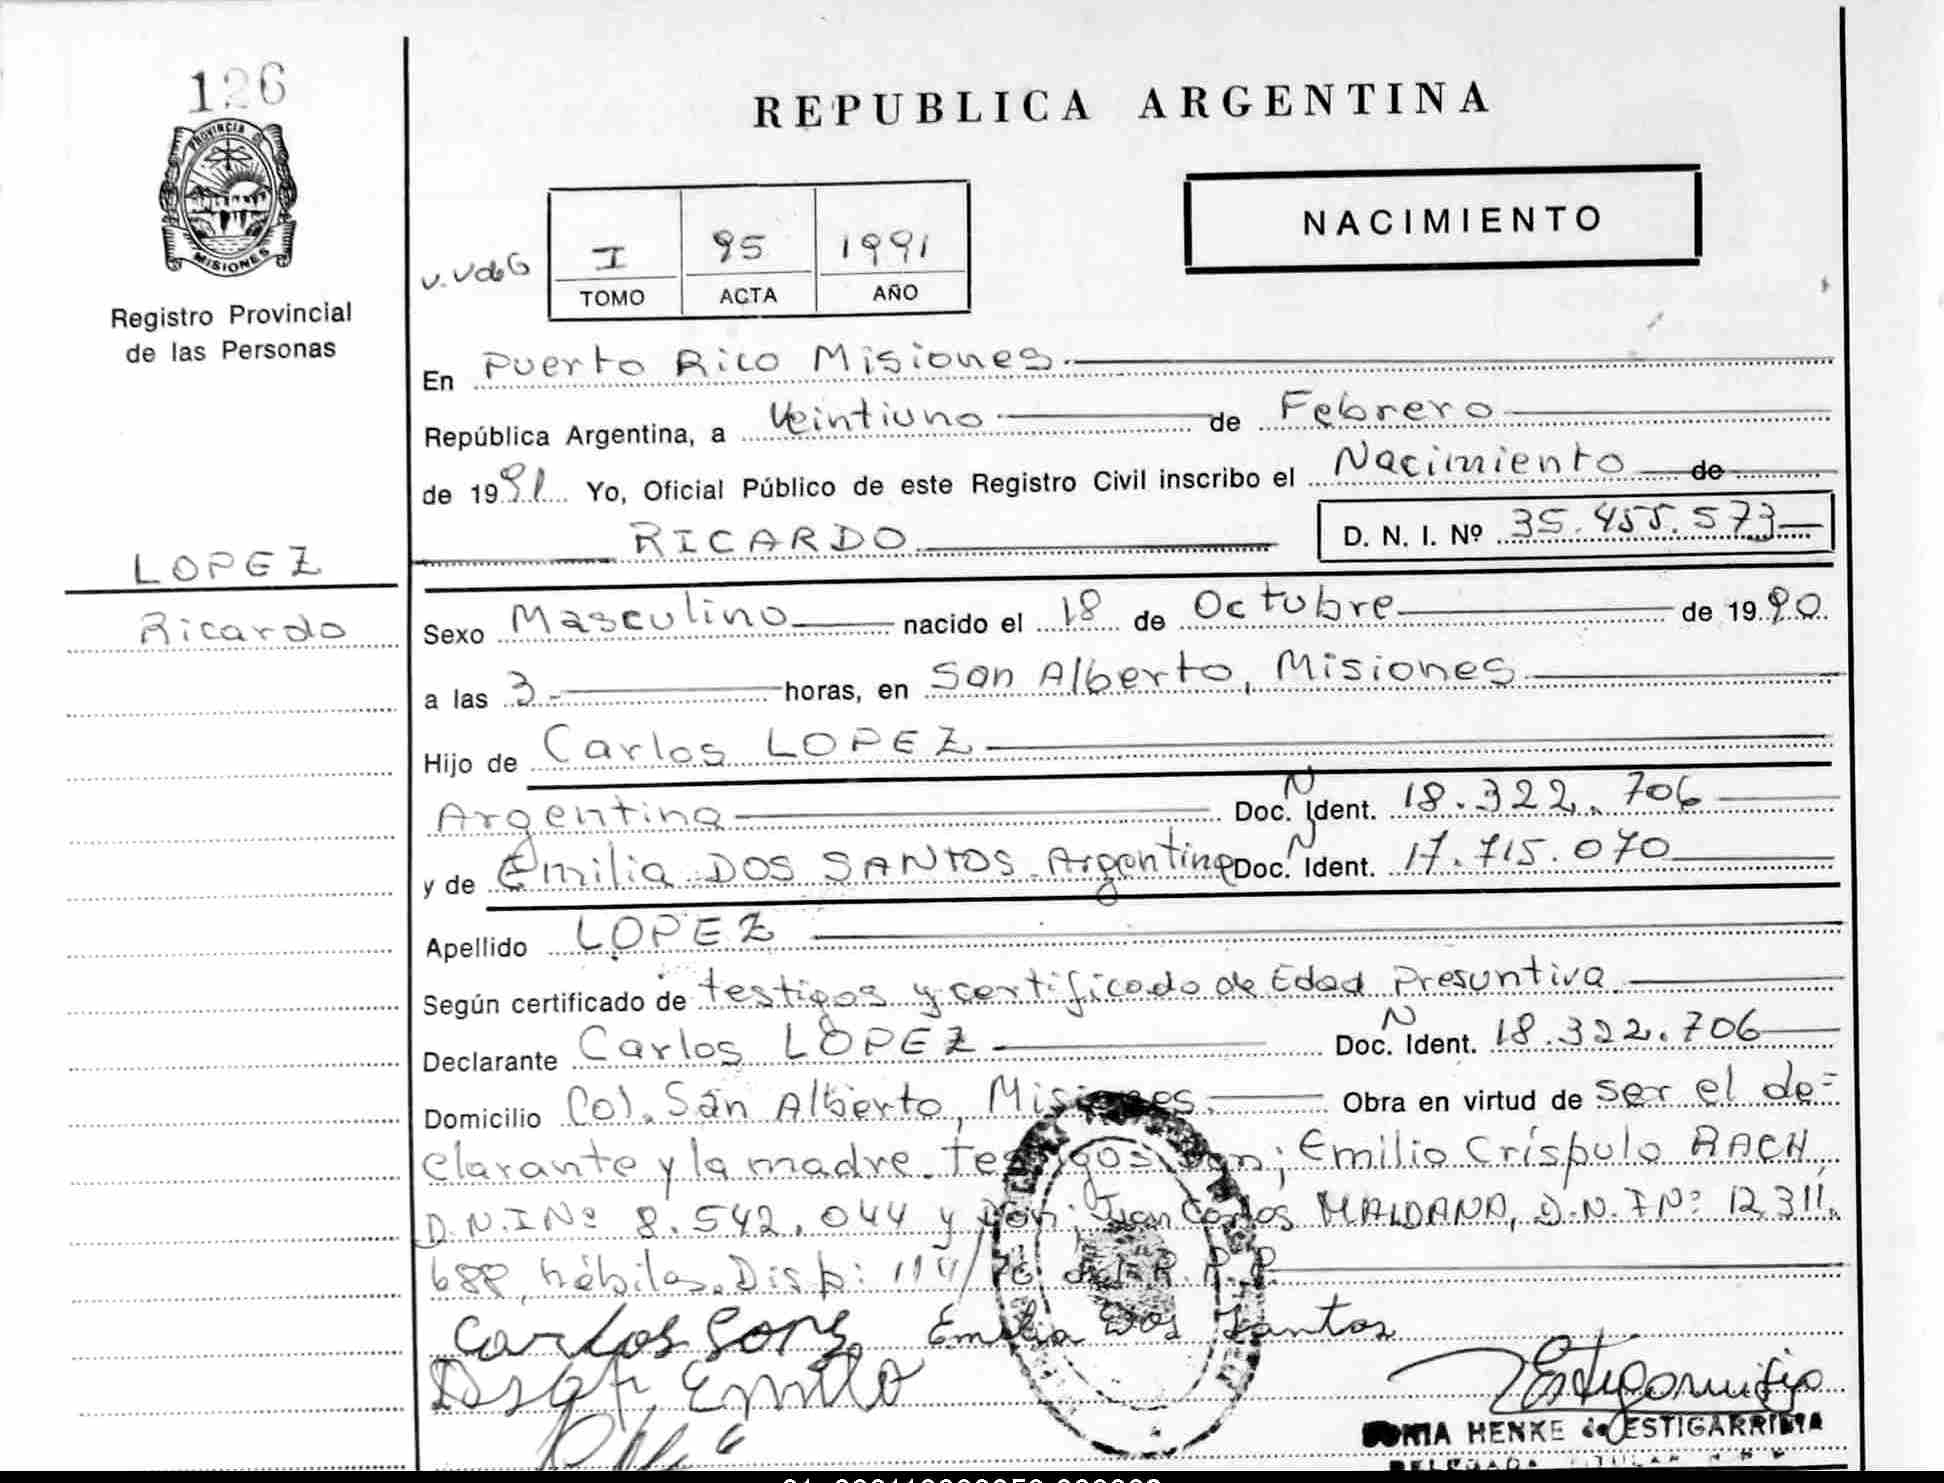 126
PROVINCIA DE
MISIONES
Registro Provincial
de las Personas
LOPEZ
Ricardo
REPUBLICA ARGENTINA
NACIMIENTO
I 95 1991
TOMO ACTA AÑO
En Puerto Rico Misiones
República Argentina, a Veintiuno de Febrero
de 1991 Yo, Oficial Público de este Registro Civil inscribo el Nacimiento de
RICARDO D. N. I. Nº 35.455.573
Sexo Masculino nacido el 18 de Octubre de 1990.
a las 3 horas, en San Alberto, Misiones
Hijo de Carlos LOPEZ
Argentina Doc. N Ident. 18.322.706
y de Emilia DOS SANTOS Argentina Doc. N Ident. 17.715.070
Apellido LOPEZ
Según certificado de testigos y certificado de Edad Presuntiva
Declarante Carlos LOPEZ Doc. N Ident. 18.322.706
Domicilio Col. San Alberto, Misiones. Obra en virtud de ser el de=
clarante y la madre. Testigos Don; Emilio Críspulo
D.N.I Nº 8.542.044 y Don; Juan Carlos MALDANA, D.N.I Nº 12.311.
688, hábiles. Disp: R.P.P.
Carlos
Emilia Dos Santos
Emilio
HENKE de ESTIGARRIBIA